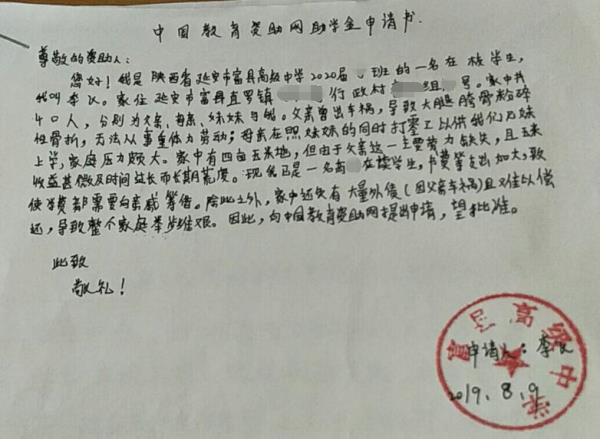 中国教育资助网助学金申请书
尊敬的资助人:
您好!我是陕西省延安市富县高级中学2020届 班的一名在校学生,
我叫李 。家住延安市富县直罗镇 行政村 组 号。家中共
4口人,分别为父亲、母亲、妹妹与我。父亲曾出车祸,导致大腿胯骨粉碎
性骨折,无法从事重体力劳动;母亲在照 妹妹的同时打零工以供我们兄妹
上学,家庭压力颇大。家中有四亩玉米地,但由于父亲这一主要劳力缺失,且玉米
收益甚微及时间过长而长期荒废。现我已是一名高 在校学生,书费等支出加大,致
使学费都需要向亲戚筹借。除此之外,家中还欠有大量外债(因父亲车祸)且难以偿
还,导致整个家庭举步维艰。因此,向中国教育资助网提出申请,望批准。
此致
敬礼!
富县高级中学
申请人:李
2019.8.9